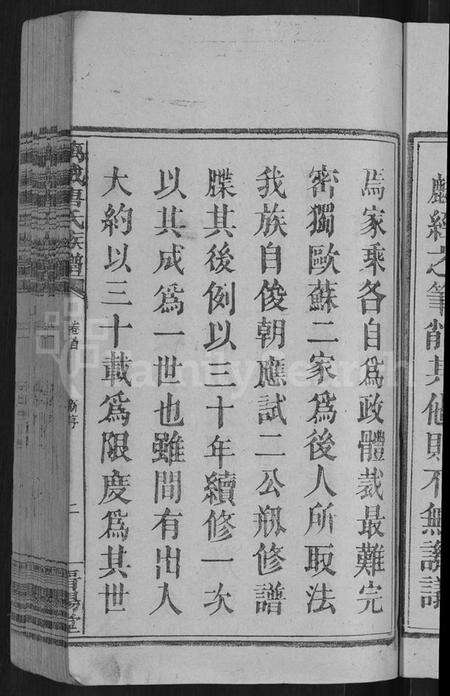 麟經之筆削其他則不無謗議
焉家乘各自爲政體裁最難完
密獨歐蘇二家爲後人所取法
我族自俊朝應試二公剏修譜
牒其後例以三十年續修一次
以其成爲一世也雖間有出入
大約以三十載爲限度爲其世
氏族譜
卷首
二
晋陽堂